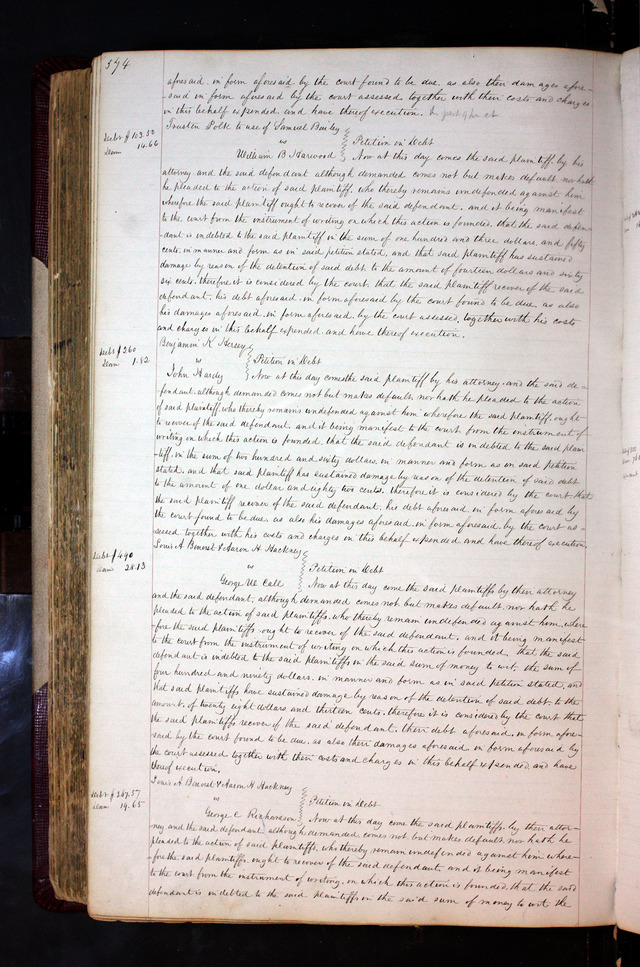 394
aforesaid, in form aforesaid by the court found to be due, as also their damages afore-
-said in form aforesaid by the court assessed together with their costs and charges
in this behalf expended and have thereof execution.
Trusten Polk to use of Samuel
Debt $103.50
Dam 14.66
vs
Petition in Debt
William B Harwood
Now at this day comes the said plaintiff by his
attorney and the said defendant although demanded comes not but makes default nor hath
he pleaded to the action of said plaintiff, who thereby remains undefended against him
wherefore the said plaintiff ought to recover of the said defendant, and it being manifest
to the court from the instrument of writing on which this action is founded, that the said defen-
dant is indebted to the said plaintiff in the sum of one hundred and three dollars and fifty
cents in manner and form as in said petition stated, and that said plaintiff has sustained
damage by reason of the detention of said debt to the amount of fourteen dollars and sixty
six cents, therefore it is considered by the court, that the said plaintiff recover of the said
defendant, his debt aforesaid, in form aforesaid by the court found to be due, as also
his damages aforesaid, in form aforesaid, by the court assessed, together with his costs
and charges in this behalf expended and have thereof execution.
Benjamin K Hersey
Debt $260
Dam 1.82
vs
Petition in Debt
John Hardy
Now at this day comes the said plaintiff by his attorney, and the said de-
fendant although demanded comes not but makes default, nor hath he pleaded to the action
of said plaintiff, who thereby remains undefended against him wherefore the said plaintiff, ought
to recover of the said defendant, and it being manifest to the court from the instrument of
writing on which this action is founded, that the said defendant is indebted to the said plain
-tiff, in the sum of two hundred and sixty dollars, in manner and form as in said petition
stated, and that said plaintiff has sustained damage by reason of the detention of said debt
to the amount of one dollar and eighty two cents. therefore it is considered by the court that
the said plaintiff recover of the said defendant, his debt aforesaid, in form aforesaid by
the court found to be due as also his damages aforesaid, in form aforesaid, by the court as-
sessed together with his costs and charges in this behalf expended and have thereof execution
Louis A Benoist & Aaron H Hackney
Debt $490
Dam 28.13
vs
Petition in Debt
George W Call
Now at this day come the said plaintiffs by their attorney
and the said defendant, although demanded comes not but makes default nor hath he
pleaded to the action of said plaintiffs, who thereby remain undefended against him, where
-fore the said plaintiffs ought to recover of the said defendant, and it being manifest
to the court from the instrument of writing on which this action is founded that the said
defendant is indebted to the said plaintiffs in the said sum of money to wit, the sum of
four hundred and ninety dollars, in manner and form as in said petition stated, and
that said plaintiffs have sustained damage by reason of the detention of said debt to the
amount, of twenty eight dollars and thirteen cents, therefore it is considered by the court that
the said plaintiffs recover of the said defendant, their debt aforesaid, in form afore-
said by the court found to be due, as also their damages aforesaid in form aforesaid by
the court assessed together with their costs and charges in this behalf expended and have
thereof execution.
Louis A Benoist & Aaron H Hackney
Dam 19.65
vs
Petition in Debt
George C Richardson
Now at this day come the said plaintiffs, by their attor-
ney, and the said defendant although demanded comes not but makes default nor hath he
pleaded to the action of said plaintiffs, who thereby remain undefended against him where-
-fore the said plaintiffs, ought to recover of the said defendant, and it being manifest
to the court from the instrument of writing, on which this action is founded, that the said
defendant is indebted to the said plaintiffs in the said sum of money to wit the